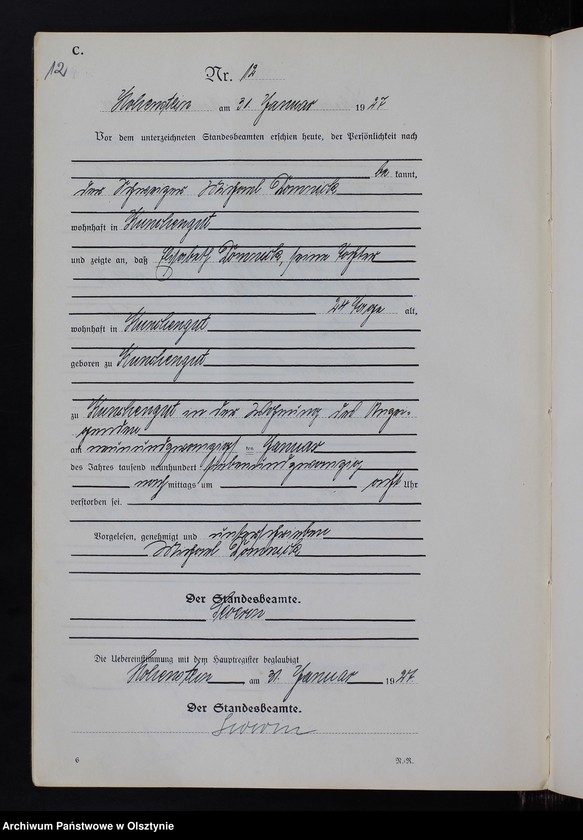 C.
12
Nr. 12
Hohenstein am 31. Januar 1927
Vor dem unterzeichneten Standesbeamten erschien heute, der Persönlichkeit nach
be kannt,
der Michael
wohnhaft in Kunchengut
und zeigte an, daß Elisabeth seine Tochter
24 Tage alt,
wohnhaft in Kunchengut
geboren zu Kunchengut
zu Kunchengut in der Wohnung des Anzei-
genden
am neunundzwanzigsten Januar
des Jahres tausend neunhundert siebenundzwanzig
nach mittags um acht Uhr
verstorben sei.
Vorgelesen, genehmigt und unterschrieben
Michael
Der Standesbeamte.
Die Uebereinstimmung mit dem Hauptregister beglaubigt
Hohenstein am 31. Januar 1927
Der Standesbeamte.
6 R.-R.
Archiwum Państwowe w Olsztynie